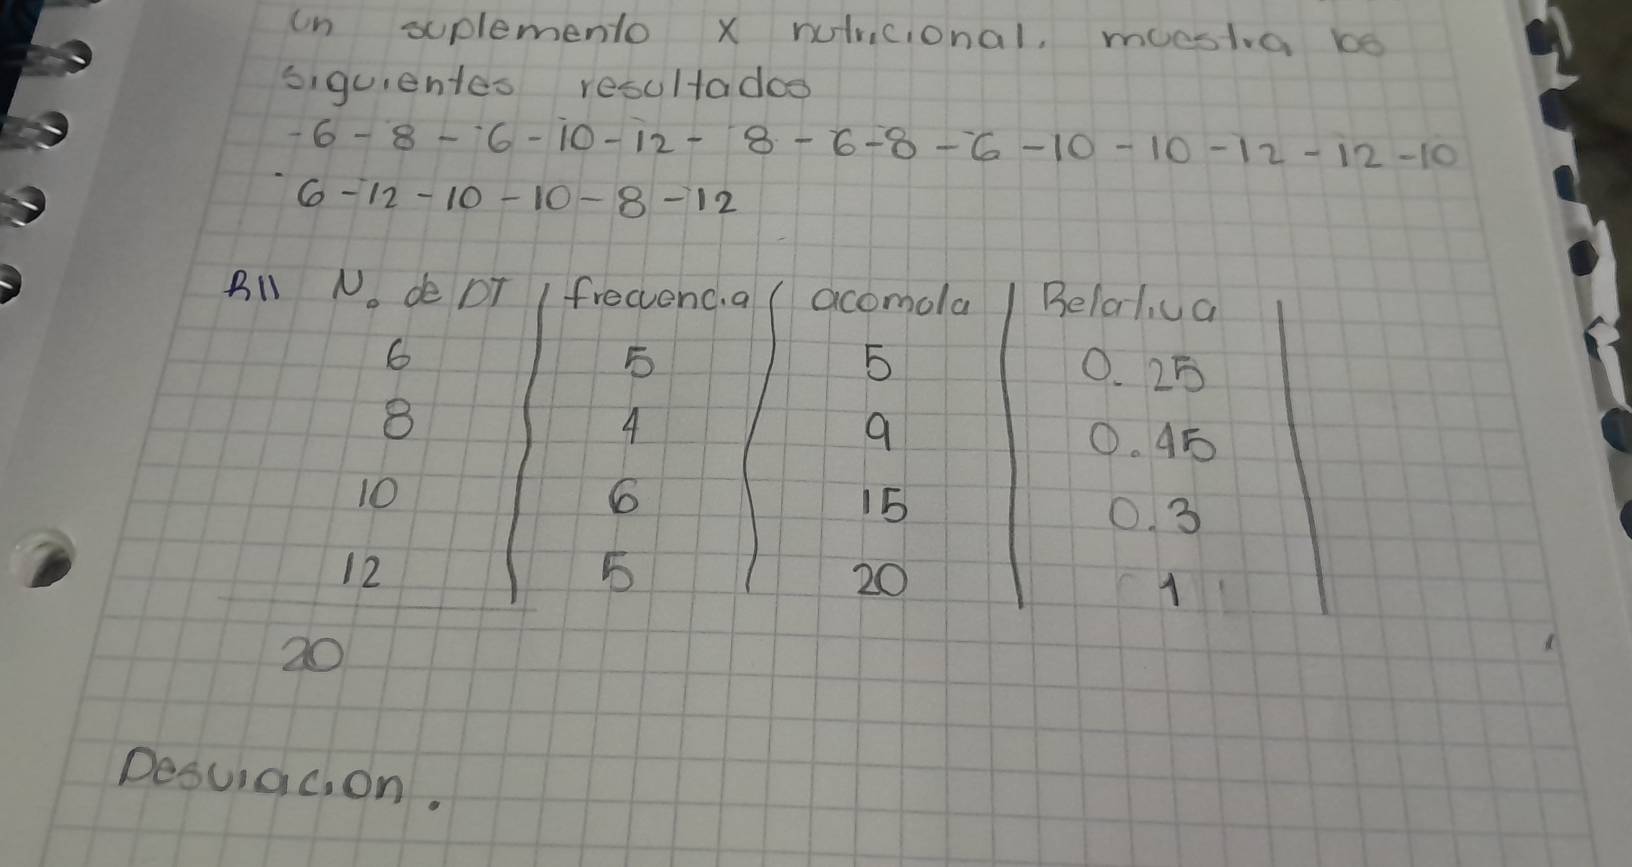 un suplemento X nutricional. muestra los
siguientes resultados
-6-8-6-10-12-8-6-8-6-10-10-12-12-10
6-12-10-10-8-12
R// No de DT frecuencia acomola Relativa
6 5 5 0.25
8 4 9 0.45
10 6 15 0.3
12 5 20 1
20
Desviacion.